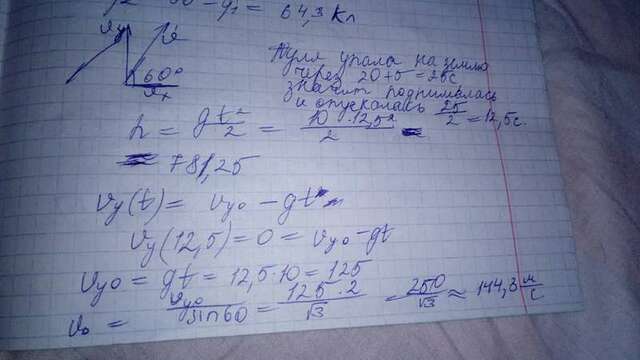 = 64,3 Кл
vy
v
60°
vx
Пуля упала на землю
через 20+5=25с
значит поднималась
и опускалась 25/2 = 12,5с.
h = gt²/2 = 10·12,5²/2 =
= 781,25
vy(t) = vy0 - gt
vy(12,5) = 0 = vy0 - gt
vy0 = gt = 12,5·10 = 125
v0 = vy0/sin60 = 125·2/√3 = 250/√3 ≈ 144,3 м/с